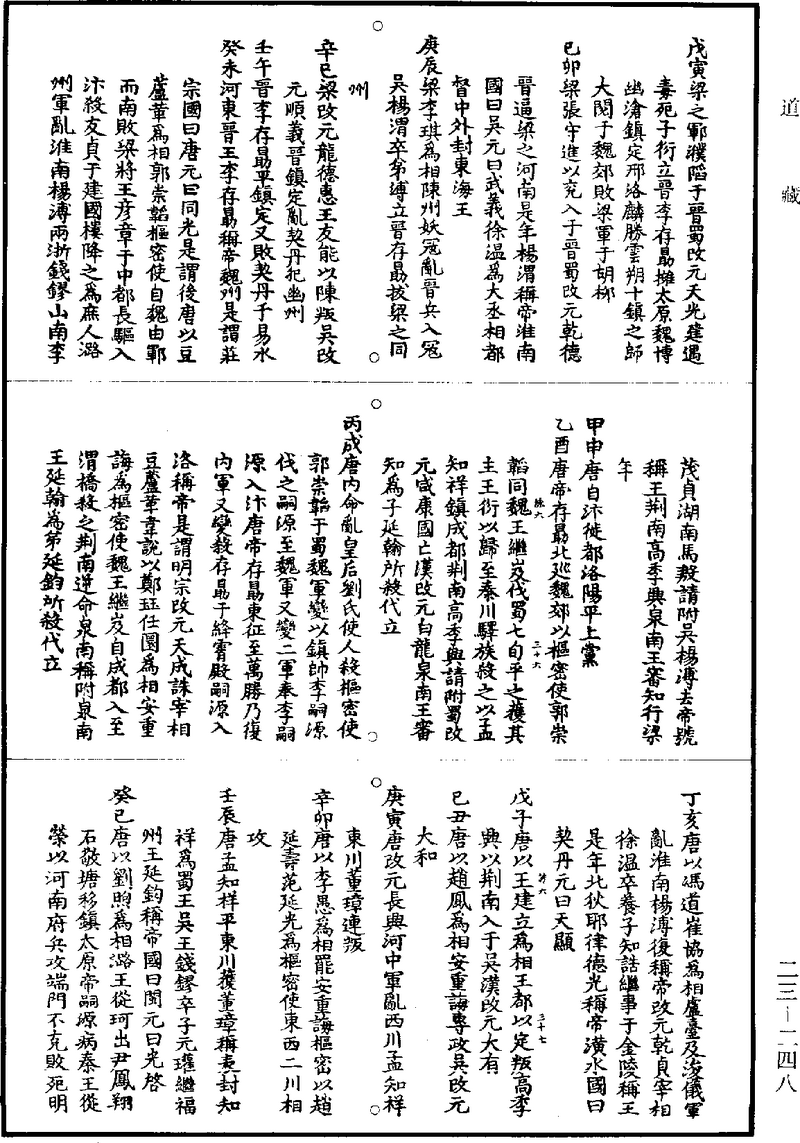 道藏
戊寅梁之鄆濮陷于晉蜀改元天光建遇
毒死子衍立晉李存勗擁太原魏博
幽滄鎮定邢洛麟勝雲朔十鎮之師
大閱于魏郊敗梁軍于胡柳
已卯梁張守進以兗入于晉蜀改元乾德
晉逼梁之河南是年楊渭稱帝淮南
國曰吳元曰武義徐溫爲大丞相都
督中外封東海王
庚辰梁李琪爲相陳州妖寇亂晉兵入寇
吳楊渭卒弟溥立晉存勗拔梁之同
州
辛巳梁改元龍德惠王友能以陳叛吳改
元順義晉鎮定亂契丹犯幽州
壬午晉李存勗平鎮定又敗契丹于易水
癸未河東晉王李存勗稱帝魏州是謂莊
宗國曰唐元曰同光是謂後唐以豆
蘆革爲相郭崇韜樞密使自魏由鄆
而南敗梁將王彦章于中都長驅入
汴殺友貞于建國樓降之爲庶人潞
州軍亂淮南楊溥兩浙錢鏐山南李
茂貞湖南馬殷請附吳楊溥去帝號
稱王荆南高季興泉南王審知行梁
年
甲申唐自汴徙都洛陽平上黨
乙酉唐帝存勗北廵魏郊以樞密使郭崇
韜同魏王繼岌伐蜀七旬平之獲其
主王衍以歸至秦川驛族殺之以孟
知祥鎮成都荆南高季興請附蜀改
元咸康國亡漢改元白龍泉南王審
知爲子延翰所殺代立
丙戌唐内命亂皇后劉氏使人殺樞密使
郭崇韜于蜀魏軍變以鎮帥李嗣源
伐之嗣源至魏軍又變二軍奉李嗣
源入汴唐帝存勗東征至萬勝乃復
内軍又變殺存勗于絳霄殿嗣源入
洛稱帝是謂明宗改元天成誅宰相
豆蘆革韋説以鄭珏任圜爲相安重
誨爲樞密使魏王繼岌自成都入至
渭橋殺之荆南逆命泉南稱附泉南
王延翰爲弟延鈞所殺代立
丁亥唐以馮道崔協爲相盧臺及浚儀軍
亂淮南楊溥復稱帝改元乾貞宰相
徐溫卒養子知誥繼事于金陵稱王
是年北狄耶律德光稱帝潢水國曰
契丹元曰天顯
戊子唐以王建立爲相王都以定叛高季
興以荆南入于吳漢改元大有
已丑唐以趙鳳爲相安重誨專政吳改元
大和
庚寅唐改元長興河中軍亂西川孟知祥
東川董璋連叛
辛卯唐以李愚爲相罷安重誨樞密以趙
延壽范延光爲樞密使東西二川相
攻
壬辰唐孟知祥平東川獲董璋稱表封知
祥爲蜀王吳王錢鏐卒子元瓘繼福
州王延鈞稱帝國曰閩元曰光啓
癸巳唐以劉煦爲相潞王從珂出尹鳳翔
石敬塘移鎮太原帝嗣源病秦王從
榮以河南府兵攻端門不克敗死明
二三－二四八